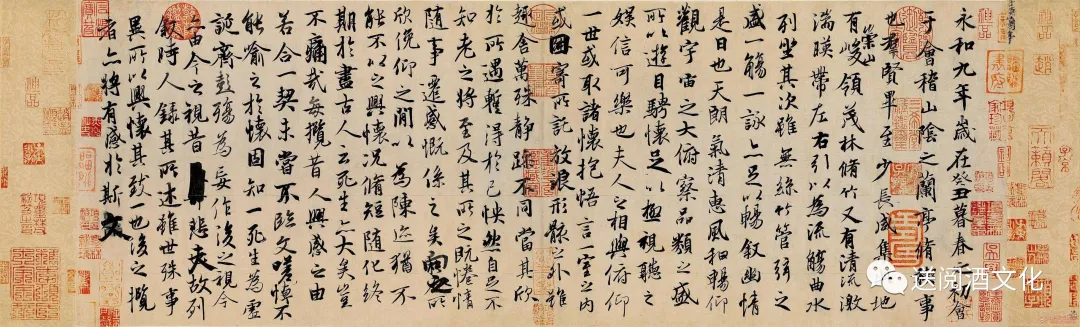 永和九年歲在癸丑暮春之初會
于會稽山陰之蘭亭脩稧事
也羣賢畢至少長咸集此地
有崇山峻領茂林脩竹又有清流激
湍暎帶左右引以為流觴曲水
列坐其次雖無絲竹管弦之
盛一觴一詠亦足以暢敘幽情
是日也天朗氣清惠風和暢仰
觀宇宙之大俯察品類之盛
所以遊目騁懷足以極視聽之
娛信可樂也夫人之相與俯仰
一世或取諸懷抱悟言一室之內
或因寄所託放浪形骸之外雖
趣舍萬殊靜躁不同當其欣
於所遇暫得於己怏然自足不
知老之將至及其所之既惓情
隨事遷感慨係之矣向之所
欣俛仰之間以為陳迹猶不
能不以之興懷況脩短隨化終
期於盡古人云死生亦大矣豈
不痛哉每攬昔人興感之由
若合一契未嘗不臨文嗟悼不
能喻之於懷固知一死生為虛
誕齊彭殤為妄作後之視今
亦由今之視昔悲夫故列
敘時人錄其所述雖世殊事
異所以興懷其致一也後之攬
者亦將有感於斯文
送阅酒文化